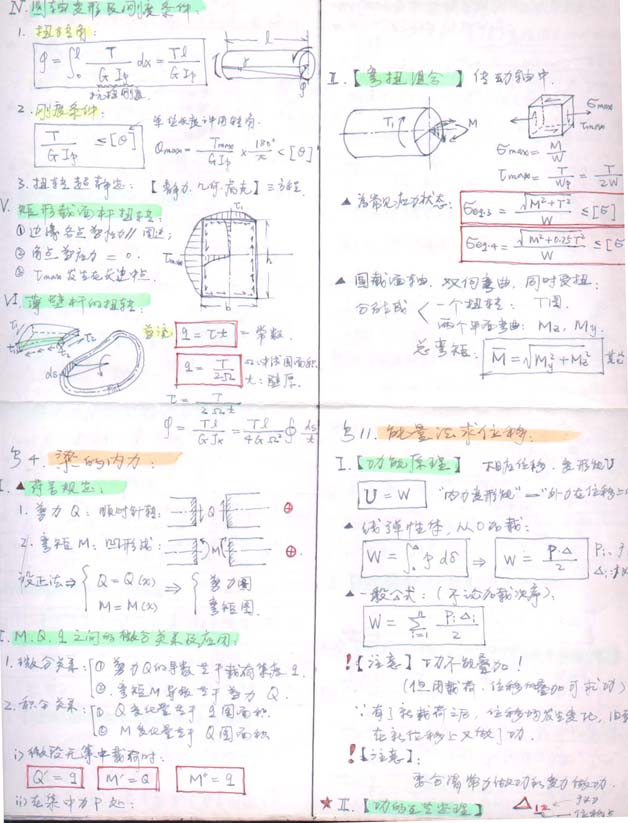 Ⅳ. 圆轴变形及刚度条件:
1. 扭转角:
φ = ∫₀ˡ T/(G Iρ) dx = Tl/(G Iρ)
l
φ
2. 刚度条件:
T/(G Iρ) ≤ [θ]
单位长度计用转角.
θmax = Tmax/(G Iρ) × 180°/π < [θ]
3. 扭转超静定: 【静力. 几何. 物理】三方程.
Ⅴ. 矩形截面杆扭转:
① 边缘各点剪应力 // 周边;
② 角点剪应力 = 0.
③ τmax 发生在长边中点.
τ₁
τmax
h
b
Ⅵ. 薄壁杆的扭转:
τ₁
τ₂
ds
q = τt = 常数.
q = T/2Ω
t: 壁厚.
τ = T/2Ωt
φ = Tl/(G Jκ) = Tl/(4GΩ²) ∮ ds/t
§4. 梁的内力:
Ⅰ. ▲ 符号规定:
1. 剪力 Q: 顺时针转: Q ⊕
2. 弯矩 M: 凹形成: M ⊕
设正法 ⇒ { Q = Q(x) ⇒ { 剪力图
M = M(x) 弯矩图.
Ⅰ. M. Q. q 之间的微分关系及应用:
1. 微分关系: ① 剪力Q的导数等于载荷集度 q.
② 弯矩M导数等于剪力 Q.
2. 积分关系: ① Q变化量等于 q图面积.
② M变化量等于 Q图面积
i) 微段无集中载荷时:
Q' = q M' = Q M'' = q
ii) 在集中力 P 处:
Ⅱ. 【弯扭组合】 传动轴中.
T₁
M
σmax
τmax
σmax = M/W
τmax = T/Wρ = T/2W
▲ 常见应力状态:
σeq·3 = √(M²+T²)/W ≤ [σ]
σeq·4 = √(M²+0.75T²)/W ≤ [σ
▲ 圆截面轴. 双向弯曲. 同时受扭:
分解成 < 一个扭转: T图.
两个平面弯曲: Mz, My.
总弯矩: M̄ = √(My²+Mz²)
§11. 能量法求位移:
Ⅰ. 【功能原理】 相应位移. 变形能U
U = W "内力变形能" = "外力在位移上
▲ 线弹性体, 从0加载:
W = ∫₀^Δ p dδ ⇒ W = P·Δ/2
▲ 一般公式: (不论加载次序).
W = Σ(i=1→n) PᵢΔᵢ/2
! 【注意】 功不能叠加!
(但用载荷. 位移叠加可求功)
∵ 有了新载荷之后, 位移均发生变化, 旧
在新位移上又做了功.
! 【注意】:
Ⅱ. 【功的互等定理】 Δ₁₂